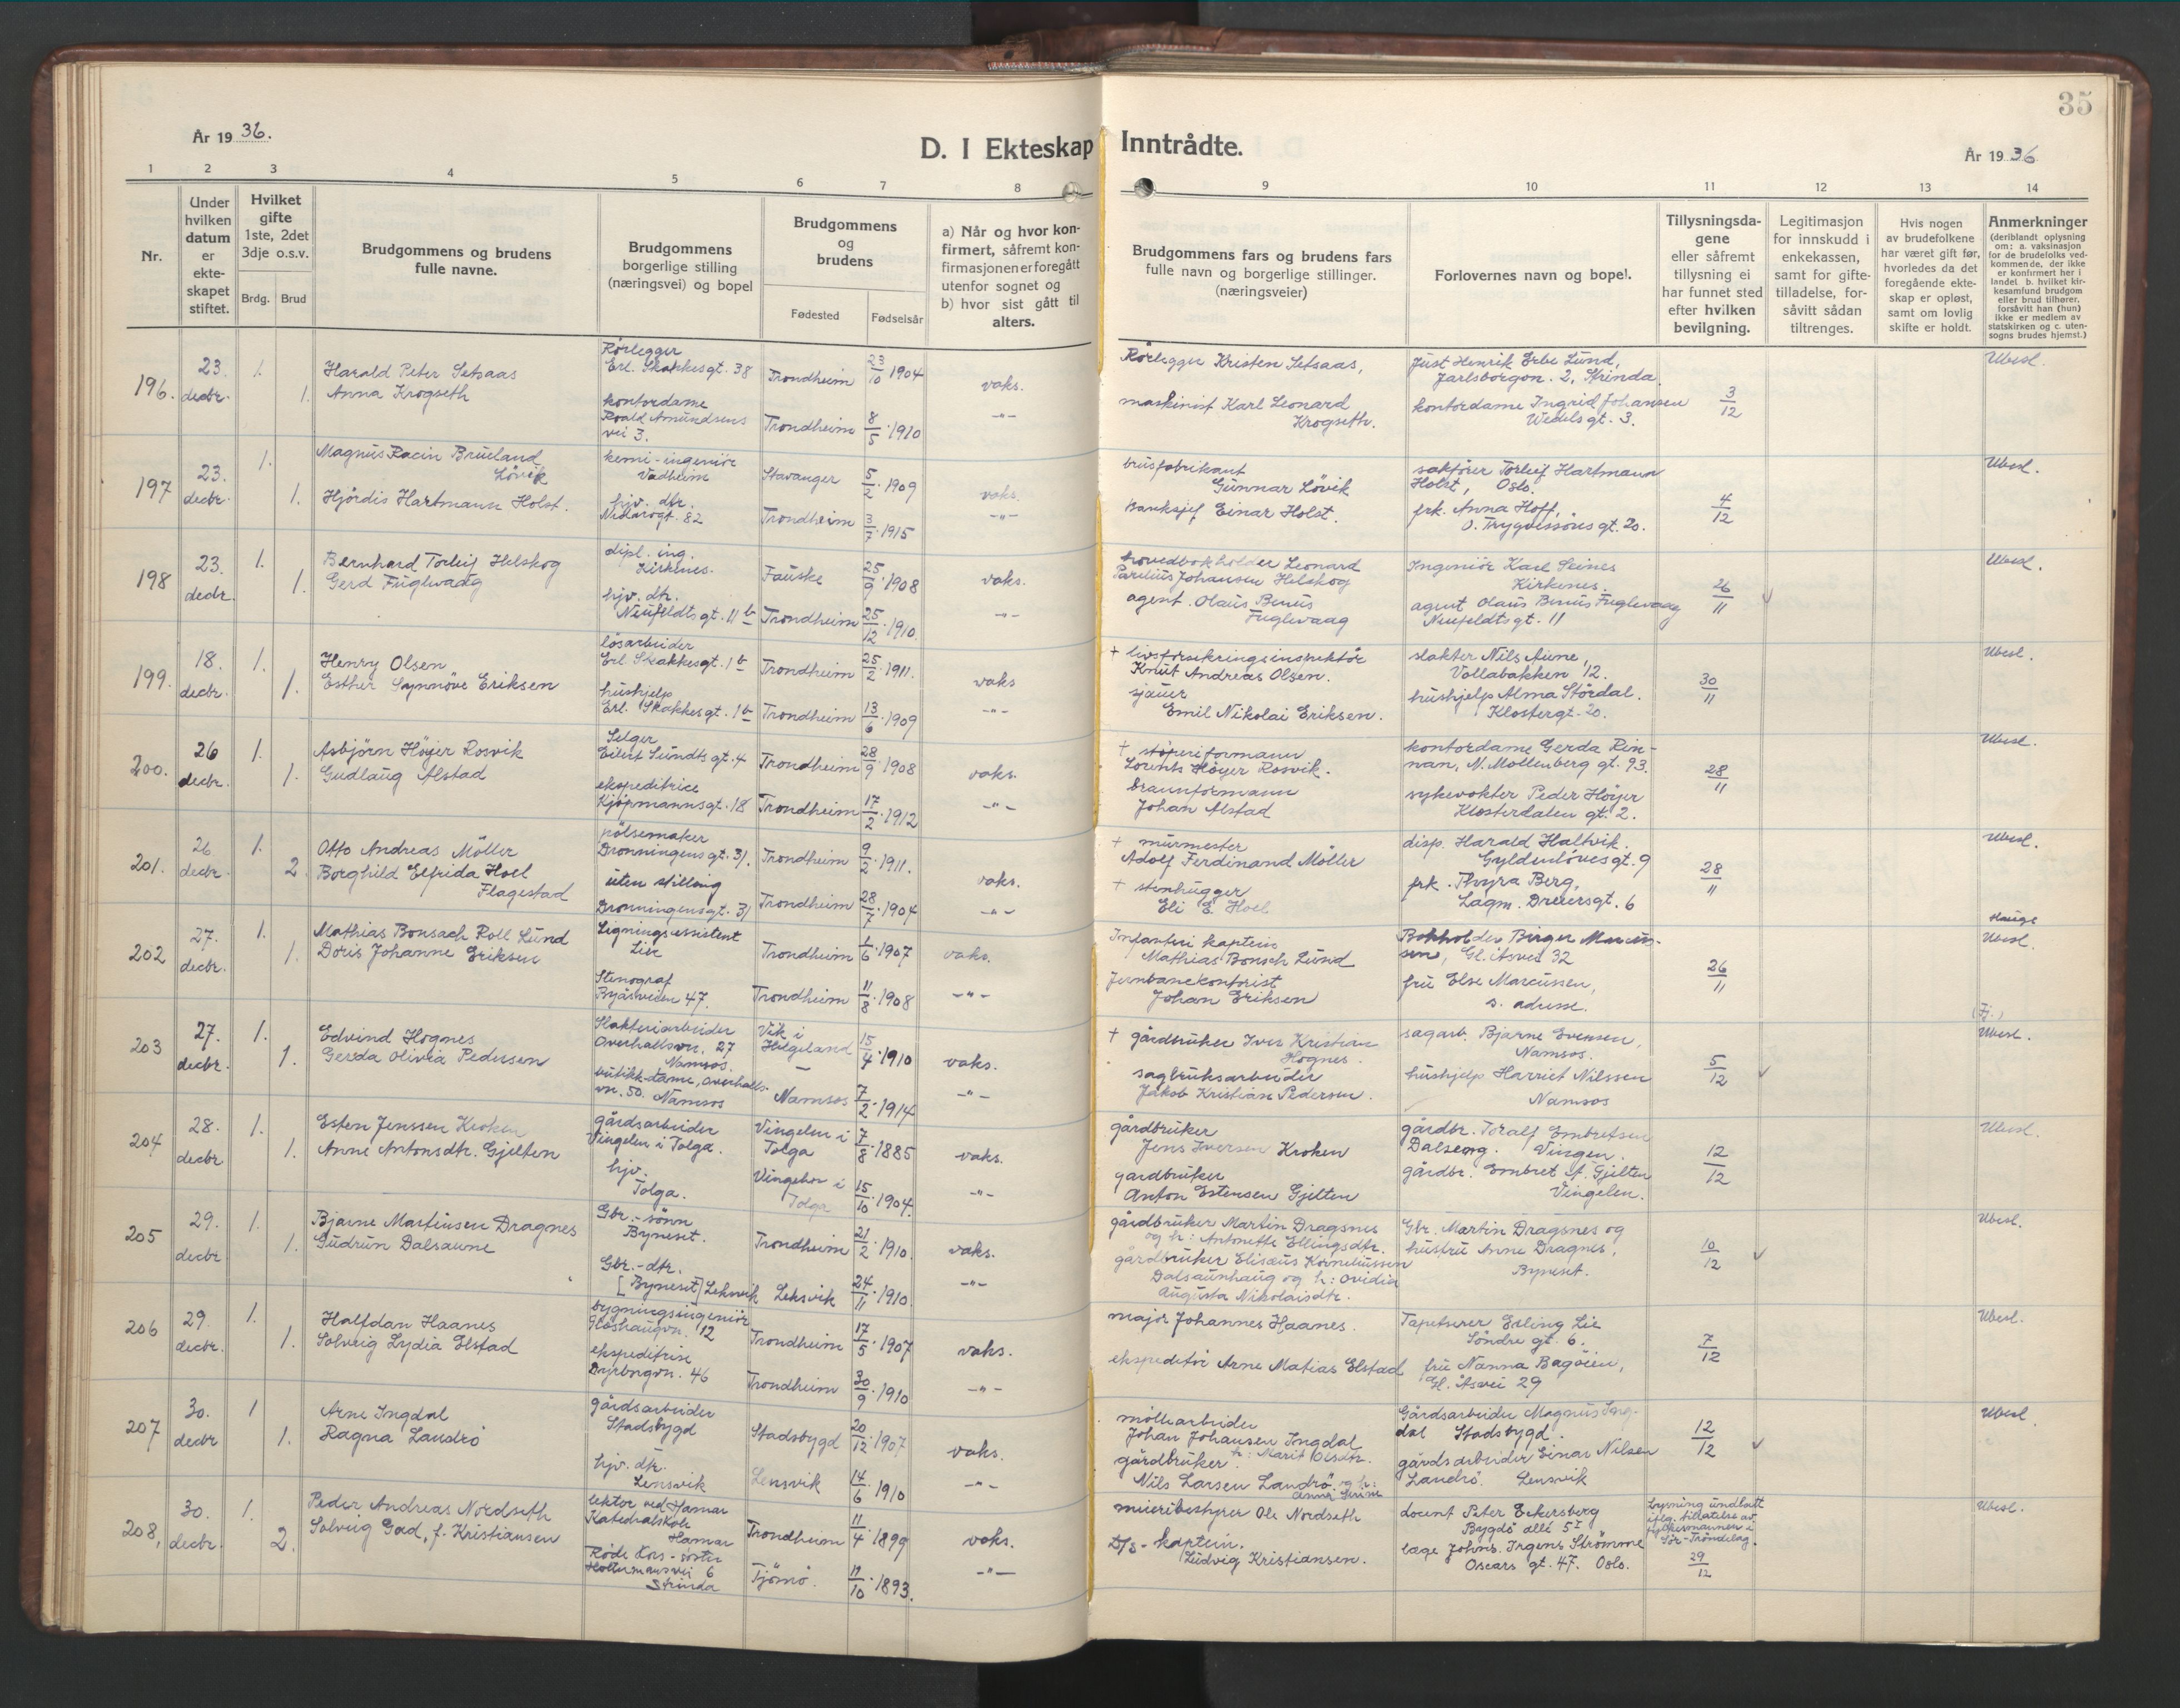 35
År 1936.
D. I Ekteskap Inntrådte.
År 1936
1 2 3 4 5 6 7 8 9 10 11 12 13 14
Nr.
Under hvilken datum er ekte-skapet stiftet.
Hvilket gifte 1ste, 2det 3dje o.s.v.
Brdg. Brud
Brudgommens og brudens fulle navne.
Brudgommens borgerlige stilling (næringsvei) og bopel
Brudgommens og brudens
Fødested Fødselsår
a) Når og hvor kon-firmert, såfremt kon-firmasjonen er foregått utenfor sognet og b) hvor sist gått til alters.
Brudgommens fars og brudens fars fulle navn og borgerlige stillinger. (næringsveier)
Forlovernes navn og bopel.
Tillysningsda-gene eller såfremt tillysning ei har funnet sted efter hvilken bevilgning.
Legitimasjon for innskudd i enkekassen, samt for gifte-tilladelse, for-såvitt sådan tiltrenges.
Hvis nogen av brudefolkene har været gift før, hvorledes da det foregående ekte-skap er opløst, samt om lovlig skifte er holdt.
Anmerkninger (deriblandt oplysning om: a. vaksinasjon for de brudefolks ved-kommende, der ikke er konfirmert her i landet b. hvilket kir-kesamfund brudgom eller brud tilhører, forsåvitt han (hun) ikke er medlem av statskirken og c. uten-sogns brudes hjemst.)
196. 23. decbr. 1. 1.
Harald Peter Setsaas
Anna Krogseth
Rørlegger
Erl. Skakkesgt. 38
kontordame
Roald Amundsens
vei 3.
Trondheim 23/10 1904 vaks.
Trondheim 8/5 1910 -"-
Rørlegger Kristen Setsaas,
maskinist Karl Leonard
Krogseth.
Just Henrik Erbe Lund,
Jarlsborgon. 2, Strinda.
kontordame Ingrid Johansen
Wedels gt. 3.
3/12
Ubesl.
197 23. decbr. 1. 1.
Magnus Racin Brueland
Lövik
Hjördis Hartmann Holst.
kemi-ingeniör
Vadheim
hjv. dtr.
Nidarosgt. 82
Stavanger 5/2 1909 vaks.
Trondheim 3/7 1915 -"-
brusfabrikant
Gunnar Lövik
Banksjef Einar Holst.
sakförer Torleif Hartmann
Holst, Oslo.
frk. Anna Hoff,
O. Trygvessöns gt. 20.
4/12
Ubesl.
198 23. decbr. 1. 1.
Bernhard Torleif Helskog
Gerd Fuglevaag
dipl. ing.
Kirkenes.
hjv. dtr.
Neufeldts gt. 11 b
Fauske 25/9 1908 vaks.
Trondheim 25/12 1910. -"-
hovedbokholder Leonard
Parelius Johansen Helskog
agent. Olaus Benus
Fuglevaag
Ingeniör Karl Seines
Kirkenes.
agent Olaus Benus Fuglevaag
Neufeldtsgt. 11
26/11
Ubesl.
199. 18. decbr. 1. 1.
Henry Olsen
Esther Synnöve Eriksen
lösarbeider
Erl. Skakkesgt. 1 b
hushjelp
Erl. Skakkesgt. 1 b
Trondheim 25/2 1911. vaks
Trondheim 13/6 1909 -"-
+ livsforsikringsinspektör
Knut Andreas Olsen.
sjauer
Emil Nikolai Eriksen.
slakter Nils Aune,
Vollabakken 12.
hushjelp Alma Stördal.
Klostergt. 20.
30/11
Ubesl.
200. 26 decbr. 1. 1.
Asbjörn Höyer Rosvik
Gudlaug Alstad
Selger
Eilert Sundts gt. 4
ekspeditrice
Kjöpmannsgt. 18
Trondheim 28/9 1908 vaks.
Trondheim 17/2 1912 -"-
+ stöperiformann
Lorents Höyer Rosvik.
brannformann
Johan Alstad
kontordame Gerda Rin-
nan, N. Mollenberg gt. 93.
sykevokter Peder Höyer
Klosterdalen gt. 2.
28/11
Ubesl.
201. 26 decbr 1. 2.
Otto Andreas Möller
Borghild Elfrida Hoel
Flagestad
pölsemaker
Dronningensgt. 31.
uten stilling
Dronningensgt. 31
Trondheim 9/2 1911. vaks.
Trondheim 28/7 1904 -"-
+ murmester
Adolf Ferdinand Möller
+ stenhugger
Eli E. Hoel
disp. Harald Haltvik.
Gyldenlövesgt. 9
frk. Thyra Berg,
Lagm. Dreiersgt. 6
28/11
Ubesl.
202 27. decbr. 1. 1.
Mathias Bonsach Roll Lund
Doris Johanne Eriksen
Ligningsassistent
Lier
Stenograf
Byåsveien 47.
Trondheim 1/6 1907 vaks.
Trondheim 11/8 1908 -"-
Infanteri kaptein
Mathias Bonsch Lund
Jernbanekontorist
Johan Eriksen
Bokholder Birger Marcus-
sen, Gl. Åsvei 32
frü Else Marcussen,
s. adresse.
26/11
Hauge
Ubesl.
203 27. decbr. 1. 1.
Edvind Hognes
Gerda Olivia Pedersen
Slakteriarbeider
Overhallsvn. 27
Namsos.
butikk-dame, Overhalls-
vn. 50. Namsos
Vik i
Helgeland 15/4 1910 vaks.
Namsos 7/2 1914 -"-
+ gårdbruker Iver Kristian
Hognes.
sagbruksarbeider
Jakob Kristian Pedersen.
sagarb. Bjarne Evensen,
Namsos.
hushjelp Harriet Nilssen
Namsos
5/12
Ubesl.
204 28. decbr. 1. 1.
Esten Jenssen Kroken
Anne Antonsdtr. Gjelten
gårdsarbeider
Vingelen i Tolga.
hjv.
Tolga.
Vingelen i
Tolga 7/8 1885 vaks.
Vingelen i
Tolga 15/10 1904. -"-
gårdbruker
Jens Iversen Kroken
gardbruker
Anton Estensen Gjelten
gårdbr. Toralf Embretsen
Dalseg. Vingen.
gårdbr. Embret A. Gjelten
Vingelen.
12/12
Ubesl.
205 29. decbr 1. 1.
Bjarne Martinsen Dragnes
Gudrun Dalsaune
Gbr.-sönn
Byneset.
Gbr.-dtr.
[Byneset] Leksvik
Trondheim 21/2 1910. vaks.
Leksvik 24/11 1910. -"-
gårdbruker Martin Dragsnes
og h: Antonette Ellingsdtr.
gårdbruker Elisæus Korneliussen
Dalsaunhaug og h: Ovidia
Augusta Nikolaisdtr.
Gbr. Martin Dragsnes og
husfrü Anne Dragnes,
Byneset.
10/12
Ubesl.
206 29. decbr. 1. 1.
Halfdan Haanes
Solveig Lydia Elstad
bygningsingeniör
Glöshaugvn. 12
ekspeditrise
Dyrborgvn. 46
Trondheim 17/5 1907 vaks.
Trondheim 30/9 1910 -"-
major Johannes Haanes.
ekspeditör Arne Matias Elstad
Tapetserer Erling Lie
Söndre gt. 6.
frü Nanna Bagöien,
Gl. Åsvei 29
7/12
Ubesl.
207 30. decbr 1 1.
Arne Ingdal
Ragna Landrö
gårdsarbeider
Stadsbygd
hjv. dtr.
Lensvik
Stadsbygd 20/12 1907 vaks.
Lensvik 14/6 1910 -"-
möllearbeider
Johan Johansen Ingdal
h: Marit Olsdtr.
gårdbruker
Nils Larsen Landrö og h:
Gårdsarbeider Magnus Ing-
dal Stadsbygd.
gårdsarbeider Einar Nilsen
Landrö Lensvik
12/12
Ubesl.
208, 30. decbr. 1. 2.
Peder Andreas Nordseth
Solveig Gad, f. Kristiansen
lektor ved Hamar
Katedralskole
Hamar
Röde Kors-söster
Holtermansvei 6
Strinda
Trondheim 11/4 1899 vaks.
Tjömö. 11/10 1893. -"-
meieribestyrer Ole Nordseth
D/S-kaptein.
Ludvig Kristiansen.
docent Peter Eckersberg
Bygdö allé 5 I
læge Johns. Irgens Strömme
Oscars gt. 47. Oslo.
Lysning undlatt
iflg. tillatelse av
fylkesmannen i
Sör-Tröndelag.
29/12
Ubesl.